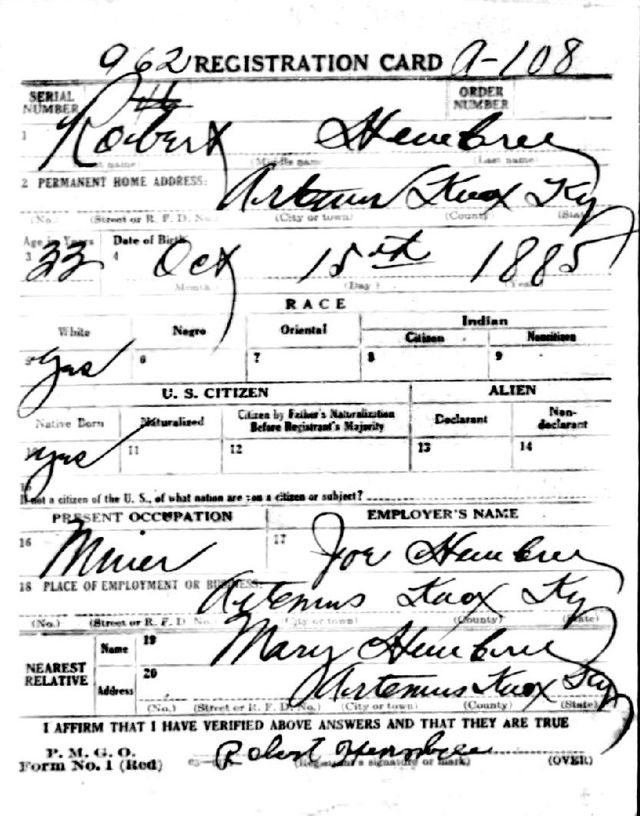 962 REGISTRATION CARD A-108
SERIAL NUMBER ORDER NUMBER
1 Robert Hembree
(Middle name) (Last name)
2 PERMANENT HOME ADDRESS: Artemus Knox Ky
(No.) (Street or R. F. D. No.) (City or town) (County) (State)
Age in Years Date of Birth
3 33 4 Oct 15th 1885
(Month) (Day) (Year)
RACE
White Negro Oriental Indian
Citizen Noncitizen
5 yes 6 7 8 9
U. S. CITIZEN ALIEN
Native Born Naturalized Citizen by Father's Naturalization Before Registrant's Majority Declarant Non-declarant
10 yes 11 12 13 14
15
If not a citizen of the U. S., of what nation are you a citizen or subject?
PRESENT OCCUPATION EMPLOYER'S NAME
16 Miner 17 Joe Hembree
18 PLACE OF EMPLOYMENT OR BUSINESS:
Artemus Knox Ky
(No.) (Street or R. F. D. No.) (City or town) (County) (State)
NEAREST RELATIVE Name 19 Mary Hembree
Address 20 Artemus Knox Ky
(No.) (Street or R. F. D. No.) (City or town) (County) (State)
I AFFIRM THAT I HAVE VERIFIED ABOVE ANSWERS AND THAT THEY ARE TRUE
P. M. G. O.
Form No. 1 (Red) Robert Hembree
(Registrant's signature or mark) (OVER)